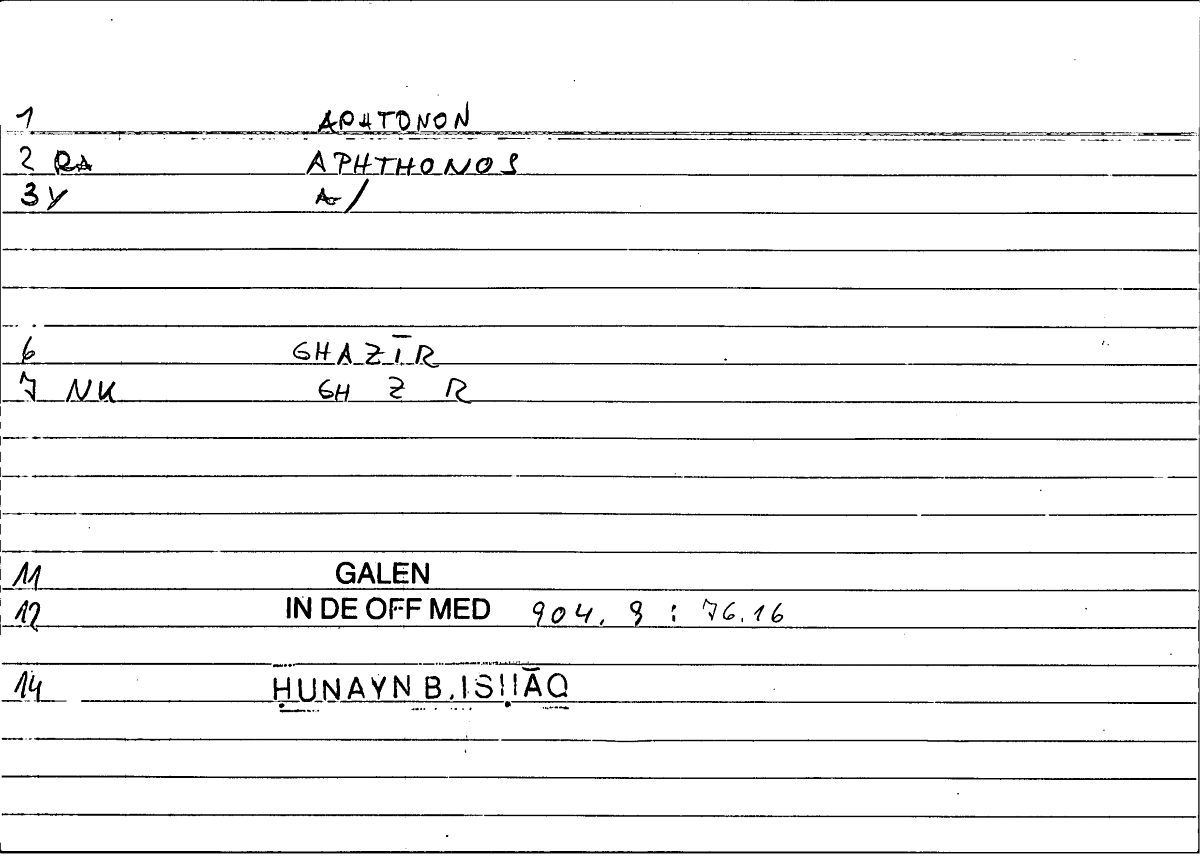 1 APHTONON
2 RA APHTHONOS
3 Y A/
6 GHAZĪR
7 NK GH Z R
11 GALEN
12 IN DE OFF MED 904.9 : 76.16
14 ḤUNAYN B. ISḤĀQ